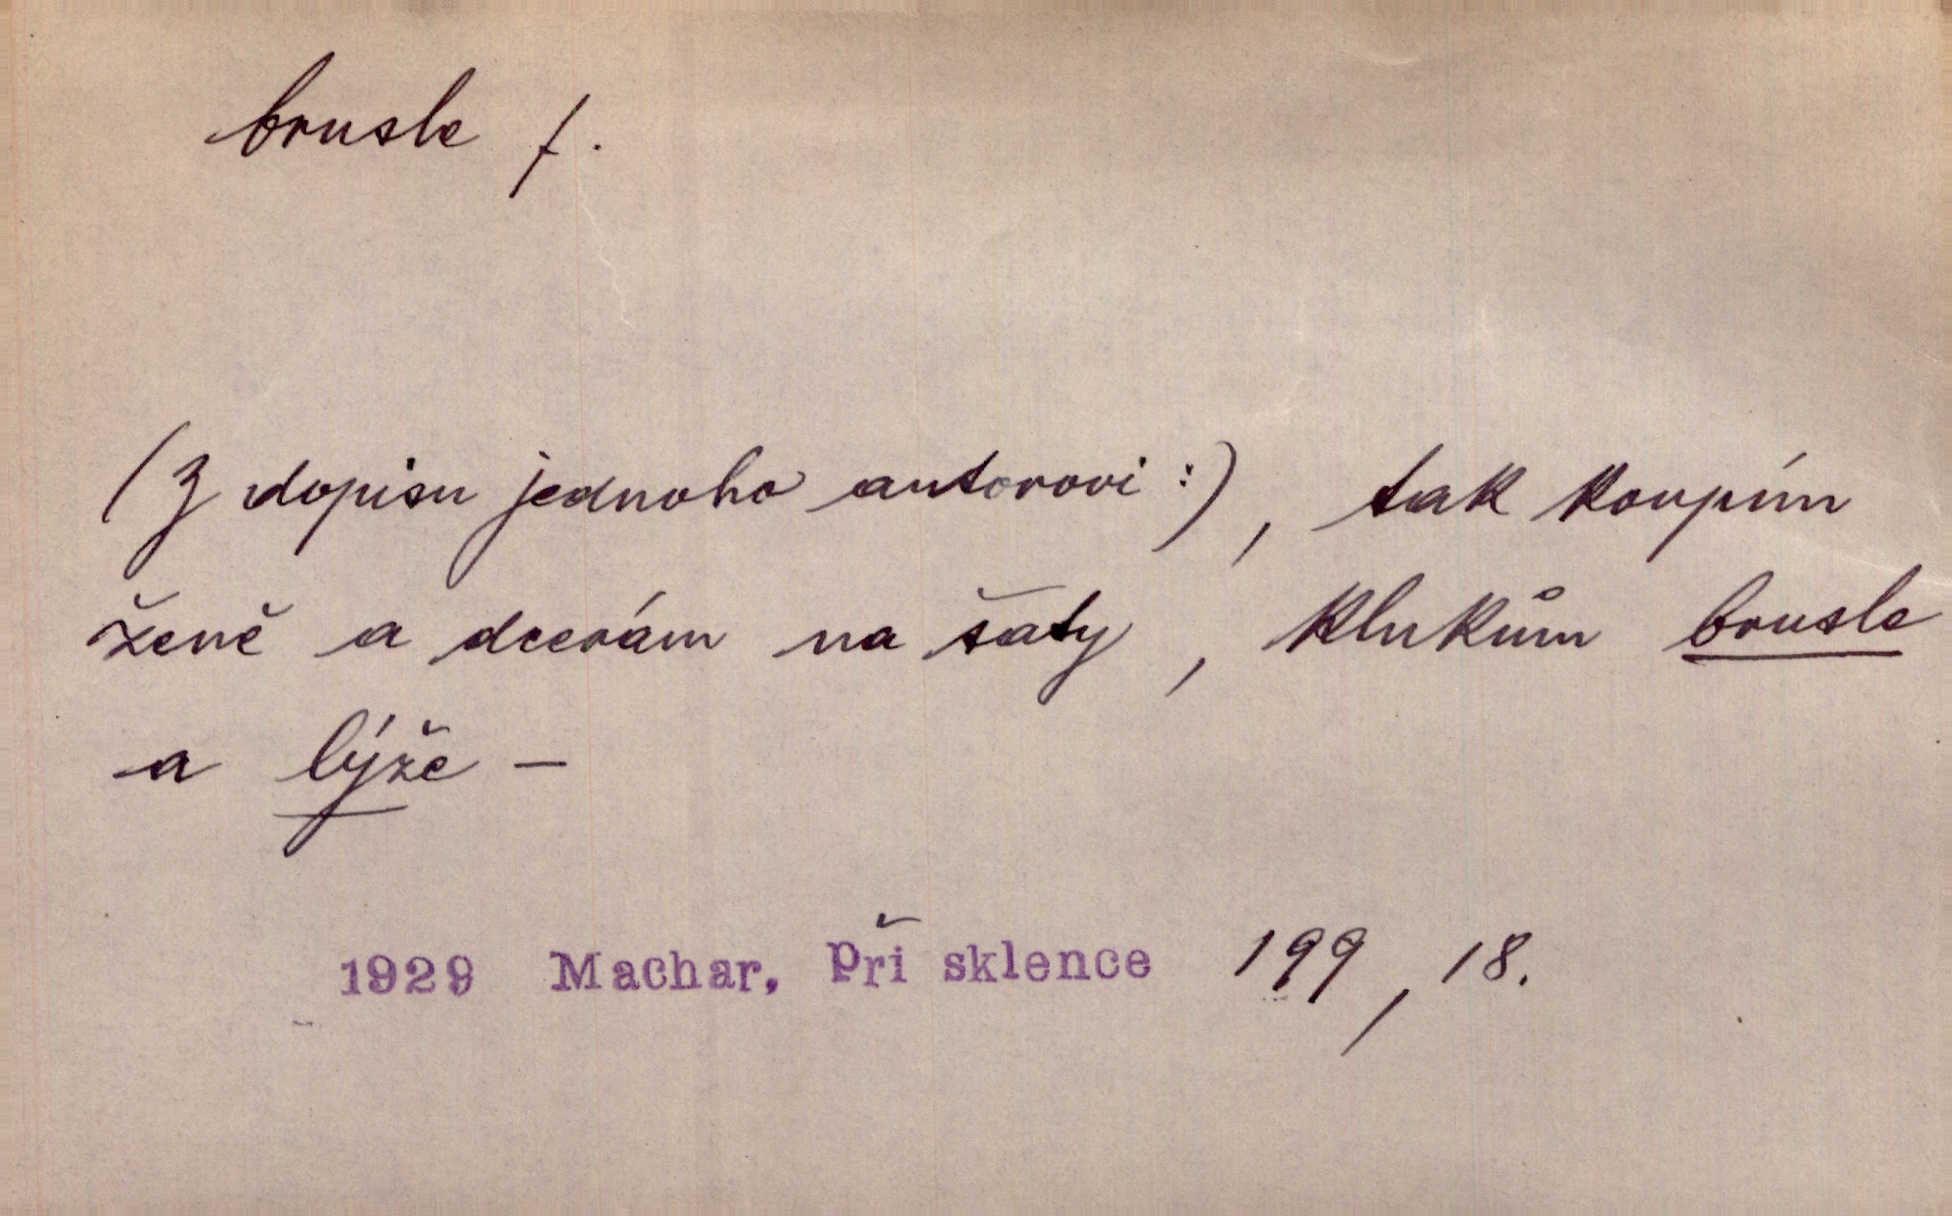 brusle f.
(Z dopisu jednoho autorovi:), tak koupím
ženě a dcerám na šaty, klukům brusle
a lýže –
1929 Machar, Při sklence 199, 18.